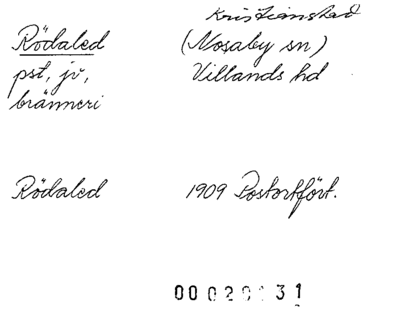 Kristianstad
Rödaled (Nosaby sn)
pst, jv, Villands hd
bränneri
Rödaled 1909 Postortfört.